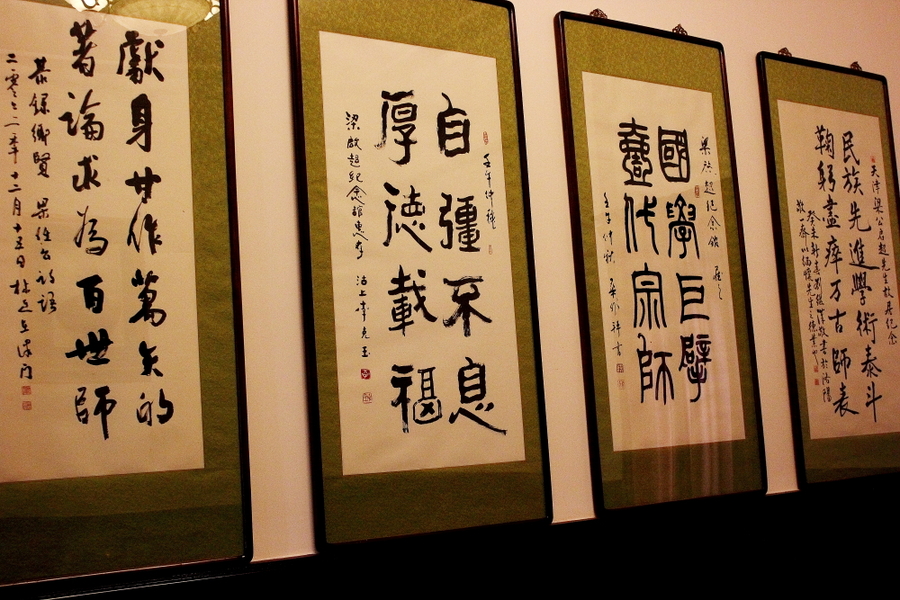 獻身甘作萬矢的
著論求為百世師
恭錄鄉賢梁任公詩語
二零零二年十二月十五日
壬午仲秋
自彊不息
厚德載福
梁啟超紀念館惠存
沽上李克玉
梁啟超紀念館
國學巨擘
臺代宗師
壬午仲秋
天津梁公啟超先生故居紀念
民族先進學術泰斗
鞠躬盡瘁万古師表